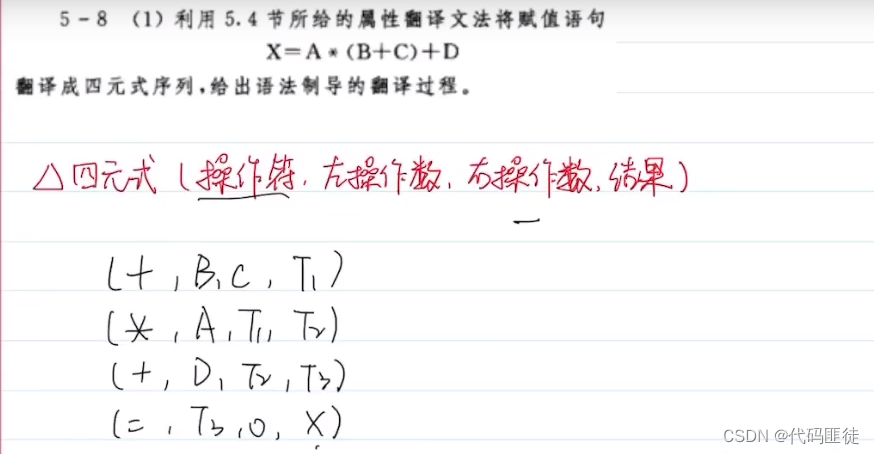 5-8 (1)利用5.4节所给的属性翻译文法将赋值语句
X=A*(B+C)+D
翻译成四元式序列,给出语法制导的翻译过程。
△四元式(操作符,左操作数,右操作数,结果)
(+,B,C,T₁)
(*,A,T₁,T₂)
(+,D,T₂,T₃)
(=,T₃,0,X)
CSDN @代码匪徒